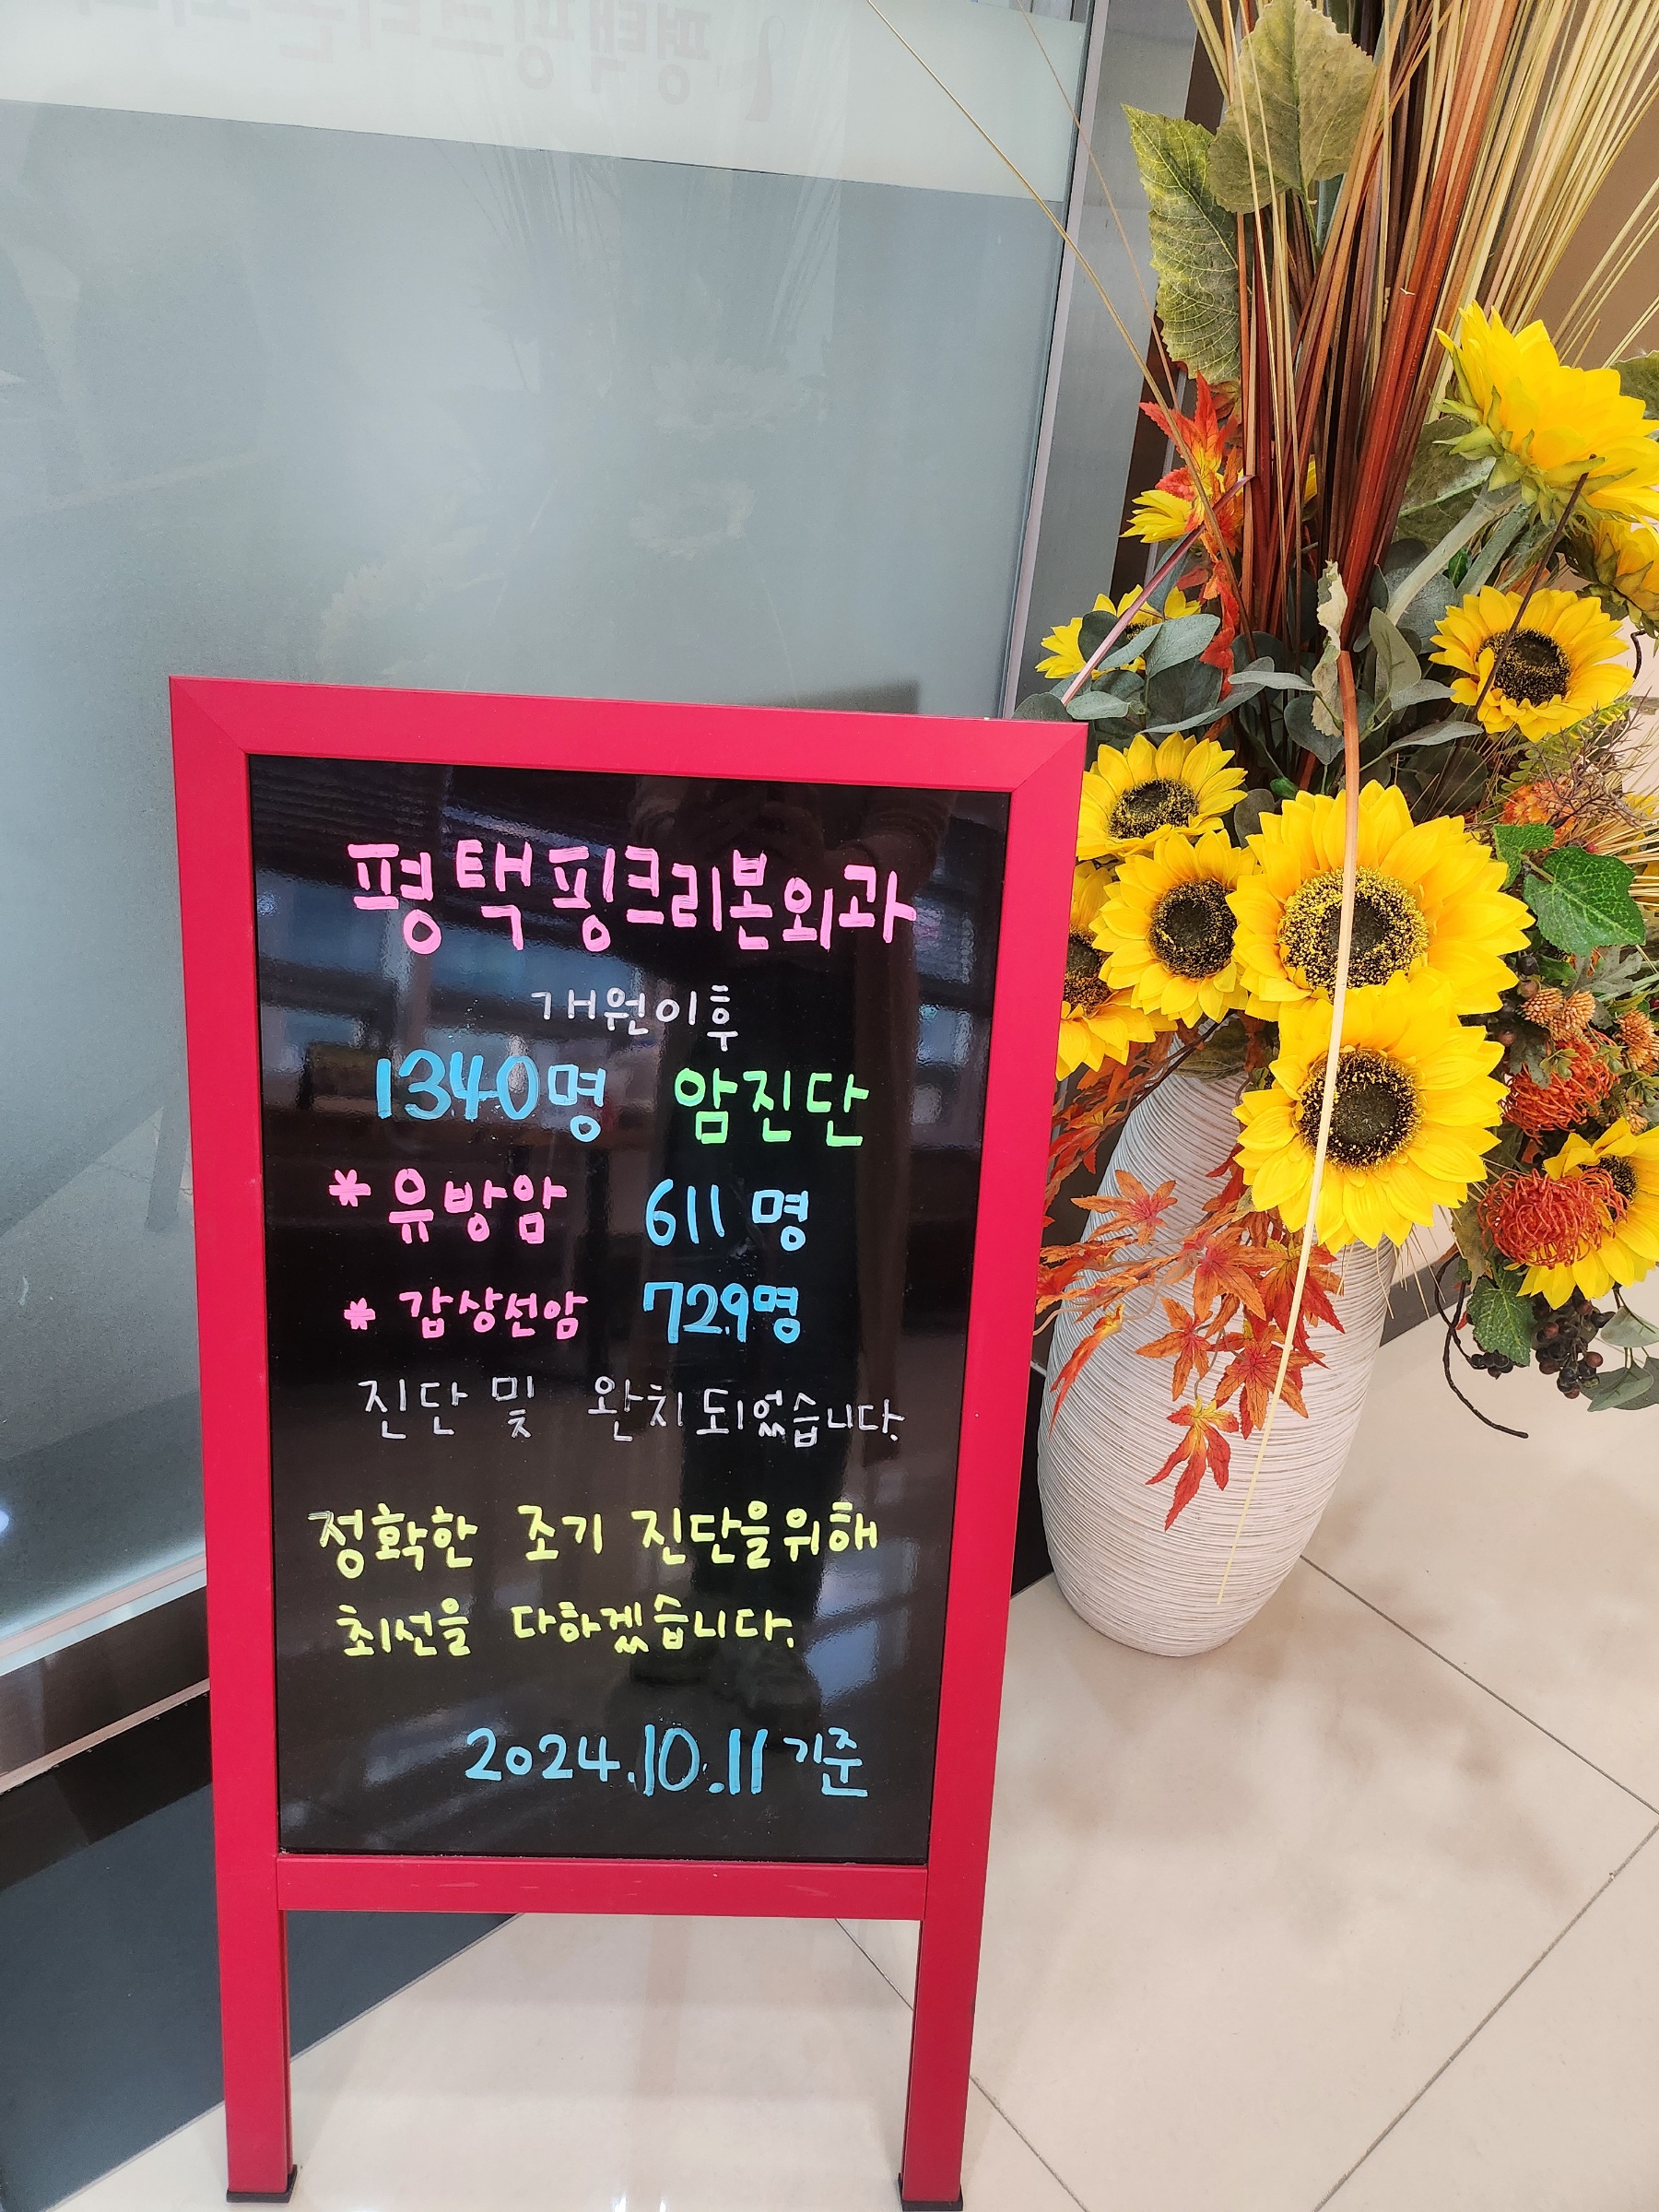 평택핑크리본외과
개원이후
1340명 암진단
* 유방암 611명
* 갑상선암 729명
진단 및 완치되었습니다.
정확한 조기 진단을위해
최선을 다하겠습니다.
2024.10.11 기준